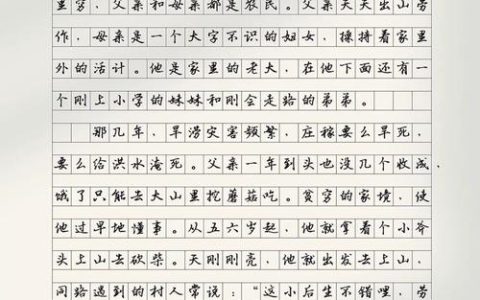 里穷，父亲和母亲都是农民。父亲天天出山劳
作，母亲是一个大字不识的妇女，操持着家里
外的活计。他是家里的老大，在他下面还有一
个刚上小学的妹妹和刚会走路的弟弟。
那几年，旱涝灾害频繁，庄稼要么旱死，
要么给洪水淹死。父亲一年到头也没几个收成，
饿了只能去大山里挖蘑菇吃。贫穷的家境，使
他过早地懂事。从五六岁起，他就拿着个小斧
头上山去砍柴。天刚刚亮，他就出发去上山，
同路遇到的村人常说：“这小后生不错哩，劳